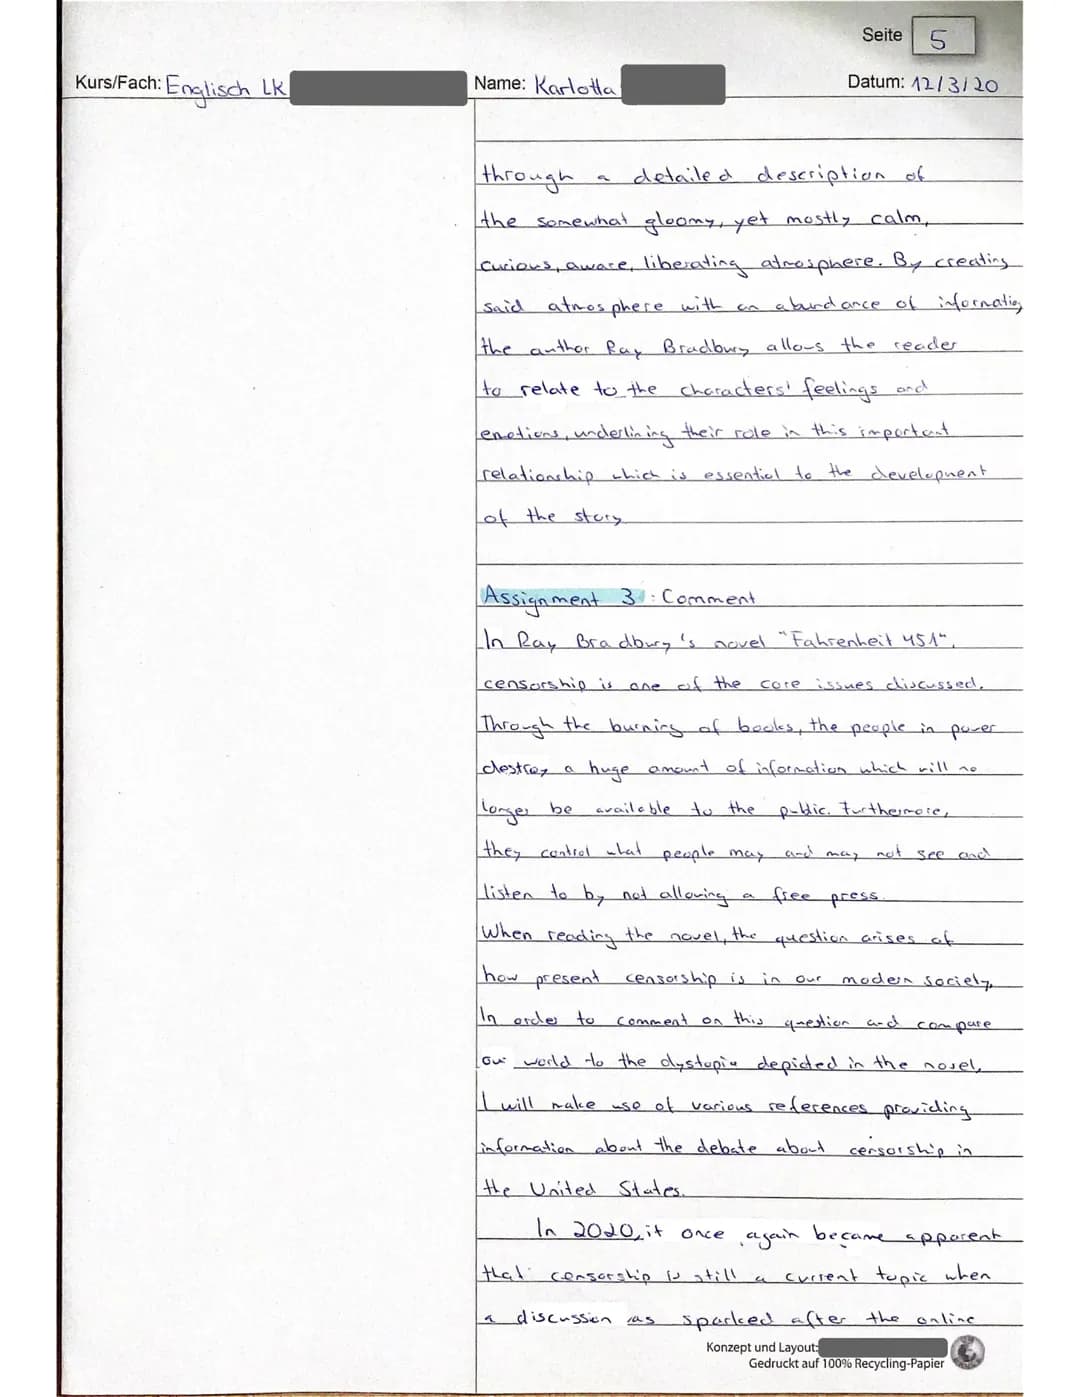 Seite 5
Kurs/Fach: Englisch LK Name: Karlotta Datum: 12/3/20
through a detailed description of
the somewhat gloomy, yet mostly calm,
curious, aware, liberating atmosphere. By creating
said atmosphere with an abundance of information
the author Ray Bradbury allows the reader
to relate to the characters' feelings and
emotions, underlining their role in this important
relationship which is essential to the development
of the story
Assignment 3: Comment
In Ray Bradbury's novel "Fahrenheit 451",
censorship is one of the core issues discussed.
Through the burning of books, the people in power
destroy a huge amount of information which will no
longer be available to the public. Furthermore,
they control what people may and may not see and
listen to by not allowing a free press.
When reading the novel, the question arises of
how present censorship is in our modern society.
In order to comment on this question and compare
our world to the dystopia depicted in the novel,
I will make use of various references providing
information about the debate about censorship in
the United States.
In 2020, it once again became apparent
that censorship is still a current topic when
a discussion was sparked after the online
Konzept und Layout:
Gedruckt auf 100% Recycling-Papier